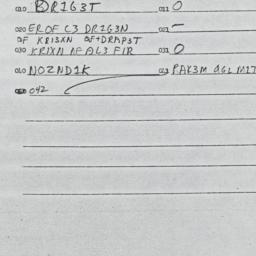 010 BR1G3T 011 O
020 EROF C3 DR1G3N 021 -
OF KR13XN OF+DRAP3T
030 KRIXN AFAL3 FIR 031 O
040 NOZND1K 043 PAK3M
042